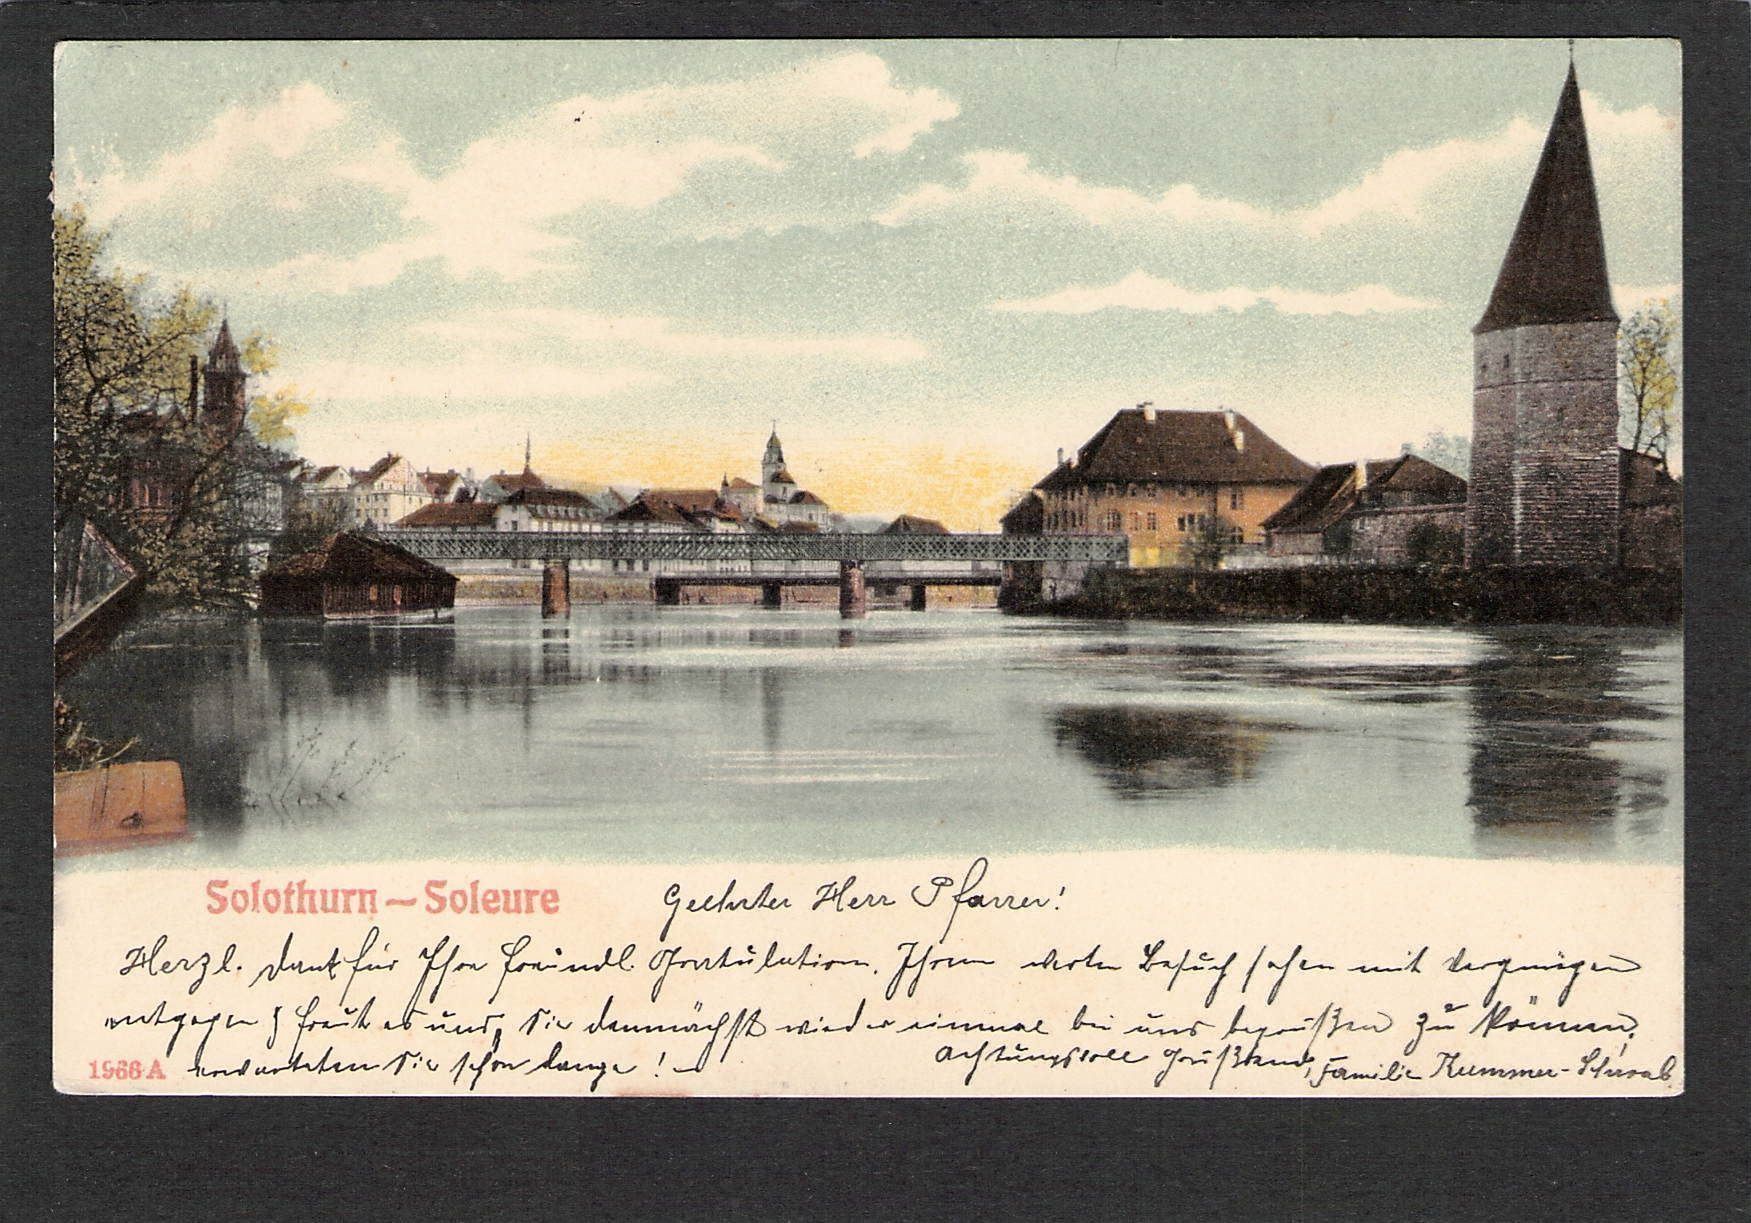 Solothurn – Soleure
Geehrter Herr Pfarrer!
Herzl. Dank für Ihre freundl. Gratulation. Ihrem werten Besuch sehen mit Vergnügen
entgegen & freut es uns, Sie demnächst wieder einmal bei uns begrüßen zu können,
erwarteten Sie schon lange!
Achtungsvoll Grüßend, Familie Kummer-Schwab
1966 A